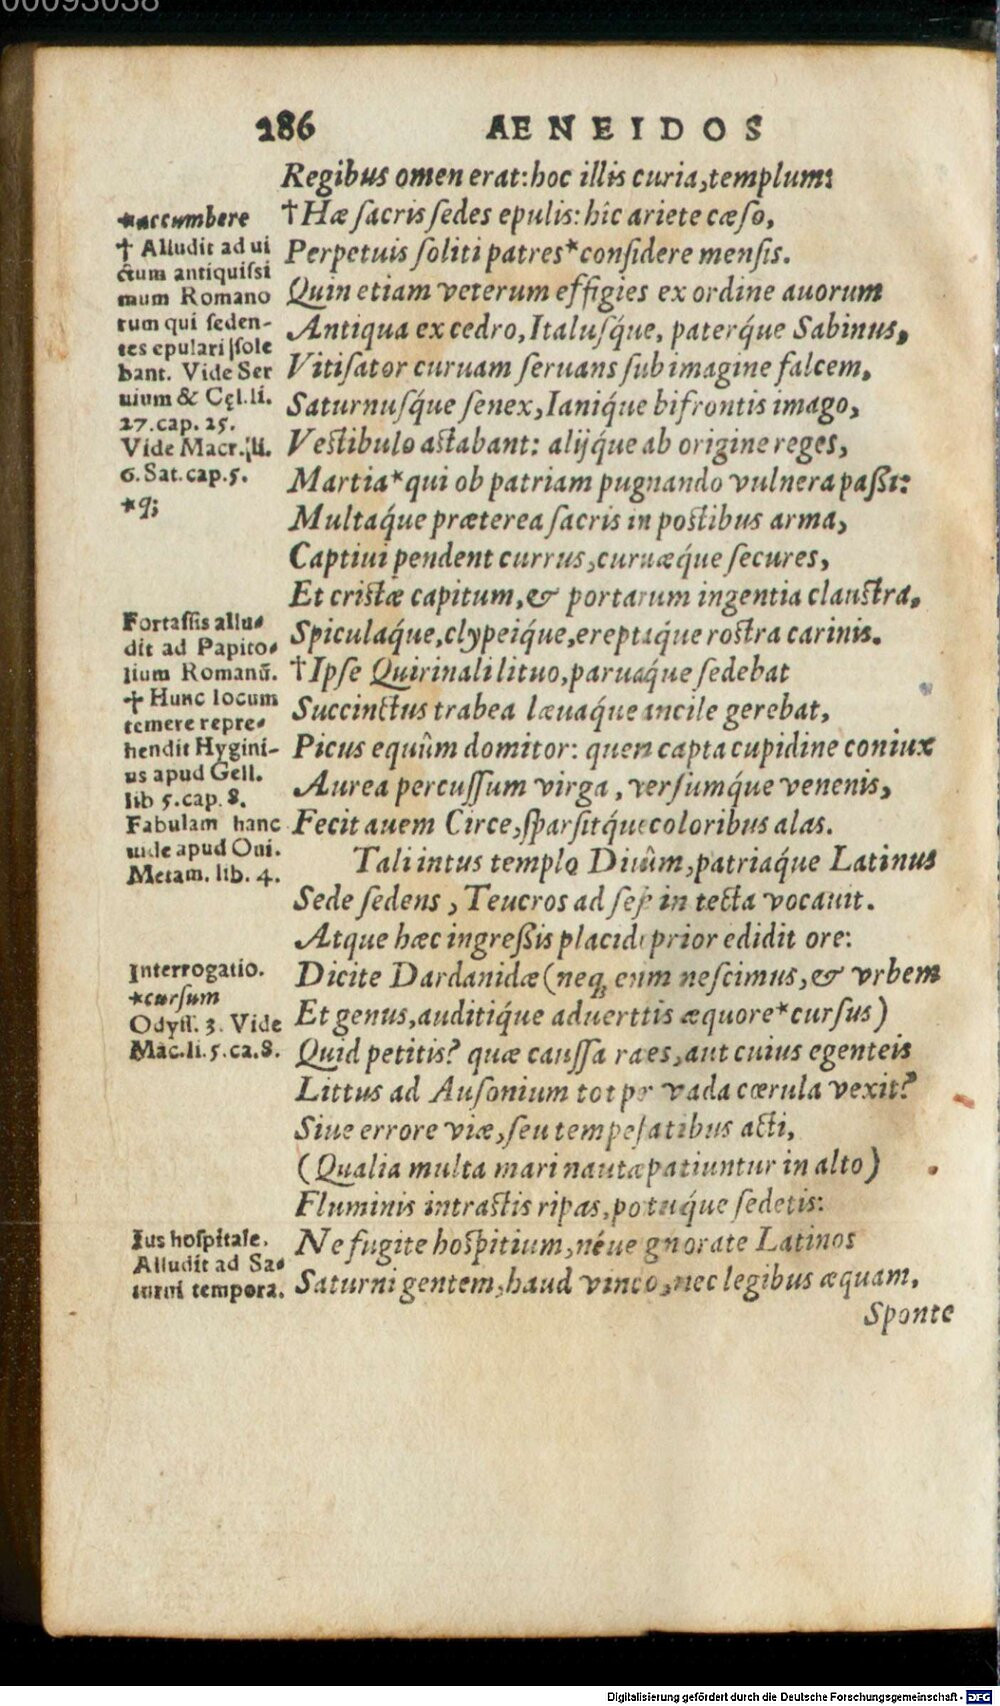 00093038
286 AENEIDOS
Regibus omen erat: hoc illis curia, templum:
†Hæ sacris sedes epulis: hîc ariete cæso,
Perpetuis soliti patres*considere mensis.
Quin etiam veterum effigies ex ordine auorum
Antiqua ex cedro, Italusq́ue, paterq́ue Sabinus,
Vitisator curuam seruans sub imagine falcem,
Saturnusq́ue senex, Ianiq́ue bifrontis imago,
Vestibulo astabant: alijq́ue ab origine reges,
Martia*qui ob patriam pugnando vulnera passi:
Multaq́ue præterea sacris in postibus arma,
Captiui pendent currus, curuæq́ue secures,
Et cristæ capitum, & portarum ingentia claustra,
Spiculaq́ue, clypeiq́ue, ereptaq́ue rostra carinis.
†Ipse Quirinali lituo, paruaq́ue sedebat
Succinctus trabea læuaq́ue ancile gerebat,
Picus equûm domitor: quem capta cupidine coniux
Aurea percussum virga, versumq́ue venenis,
Fecit auem Circe, sparsitq́ue coloribus alas.
Tali intus templo Diuûm, patriaq́ue Latinus
Sede sedens, Teucros ad sese in tecta vocauit.
Atque hæc ingressis placido prior edidit ore:
Dicite Dardanidæ (neq; enim nescimus, & vrbem
Et genus, auditiq́ue aduertitis æquore*cursus)
Quid petitis? quæ caussa raes, aut cuius egenteis
Littus ad Ausonium tot per vada cœrula vexit?
Siue errore viæ, seu tempestatibus acti,
(Qualia multa mari nautæ patiuntur in alto)
Fluminis intrastis ripas, portuq́ue sedetis:
Ne fugite hospitium, néue gnorate Latinos
Saturni gentem, haud vinclo, nec legibus æquam,
Sponte
*accumbere
† Alludit ad ui
ctum antiquissi
mum Romano
rum qui seden-
tes epulari sole
bant. Vide Ser
uium & Cęl. li.
27. cap. 25.
Vide Macr. li.
6. Sat. cap. 5.
*q;
Fortassis allu-
dit ad Papito-
lium Romanũ.
† Hunc locum
temere repre-
hendit Hygini-
us apud Gell.
lib 5. cap. 8.
Fabulam hanc
uide apud Oui.
Metam. lib. 4.
Interrogatio.
*cursum
Odyss. 3. Vide
Mac. li. 5. ca. 8.
Ius hospitale.
Alludit ad Sa-
turni tempora.
Digitalisierung gefördert durch die Deutsche Forschungsgemeinschaft - DFG